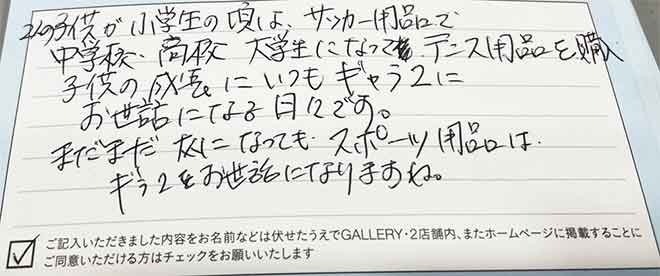 2人の子供が小学生の頃は、サッカー用品で
中学校、高校 大学生になっても テニス用品を購
子供の成長にいつもギャラ2に
お世話になる日々です。
まだまだ 大人になっても スポーツ用品は
ギャラ2をお世話になりますね。
ご記入いただきました内容をお名前などは伏せたうえでGALLERY・2店舗内、またホームページに掲載することに
ご同意いただける方はチェックをお願いいたします